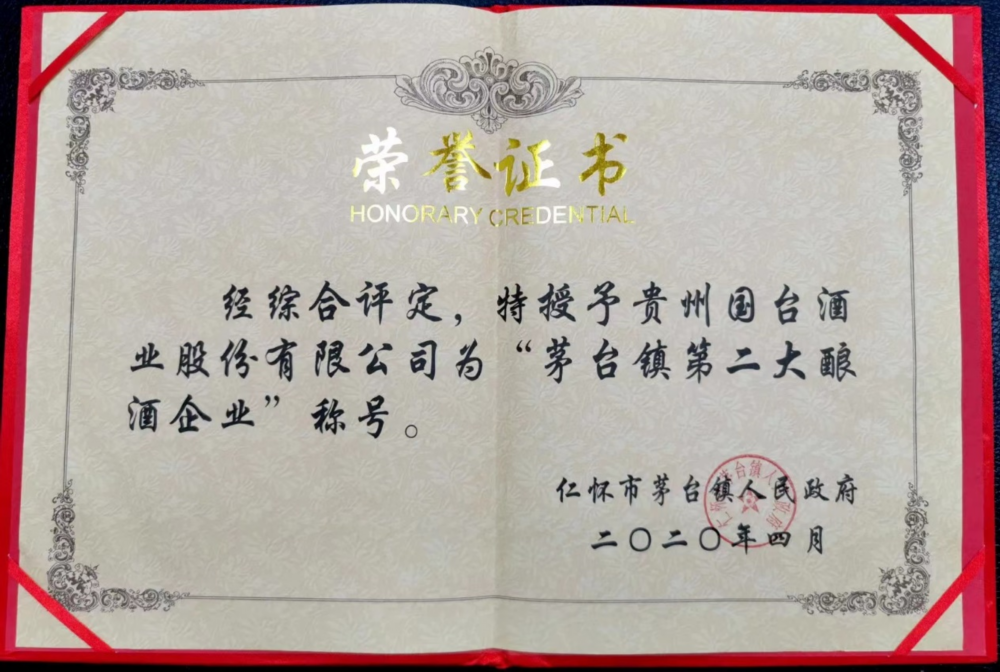 荣誉证书
HONORARY CREDENTIAL
经综合评定，特授予贵州国台酒
业股份有限公司为“茅台镇第二大酿
酒企业”称号。
仁怀市茅台镇人民政府
二〇二〇年四月